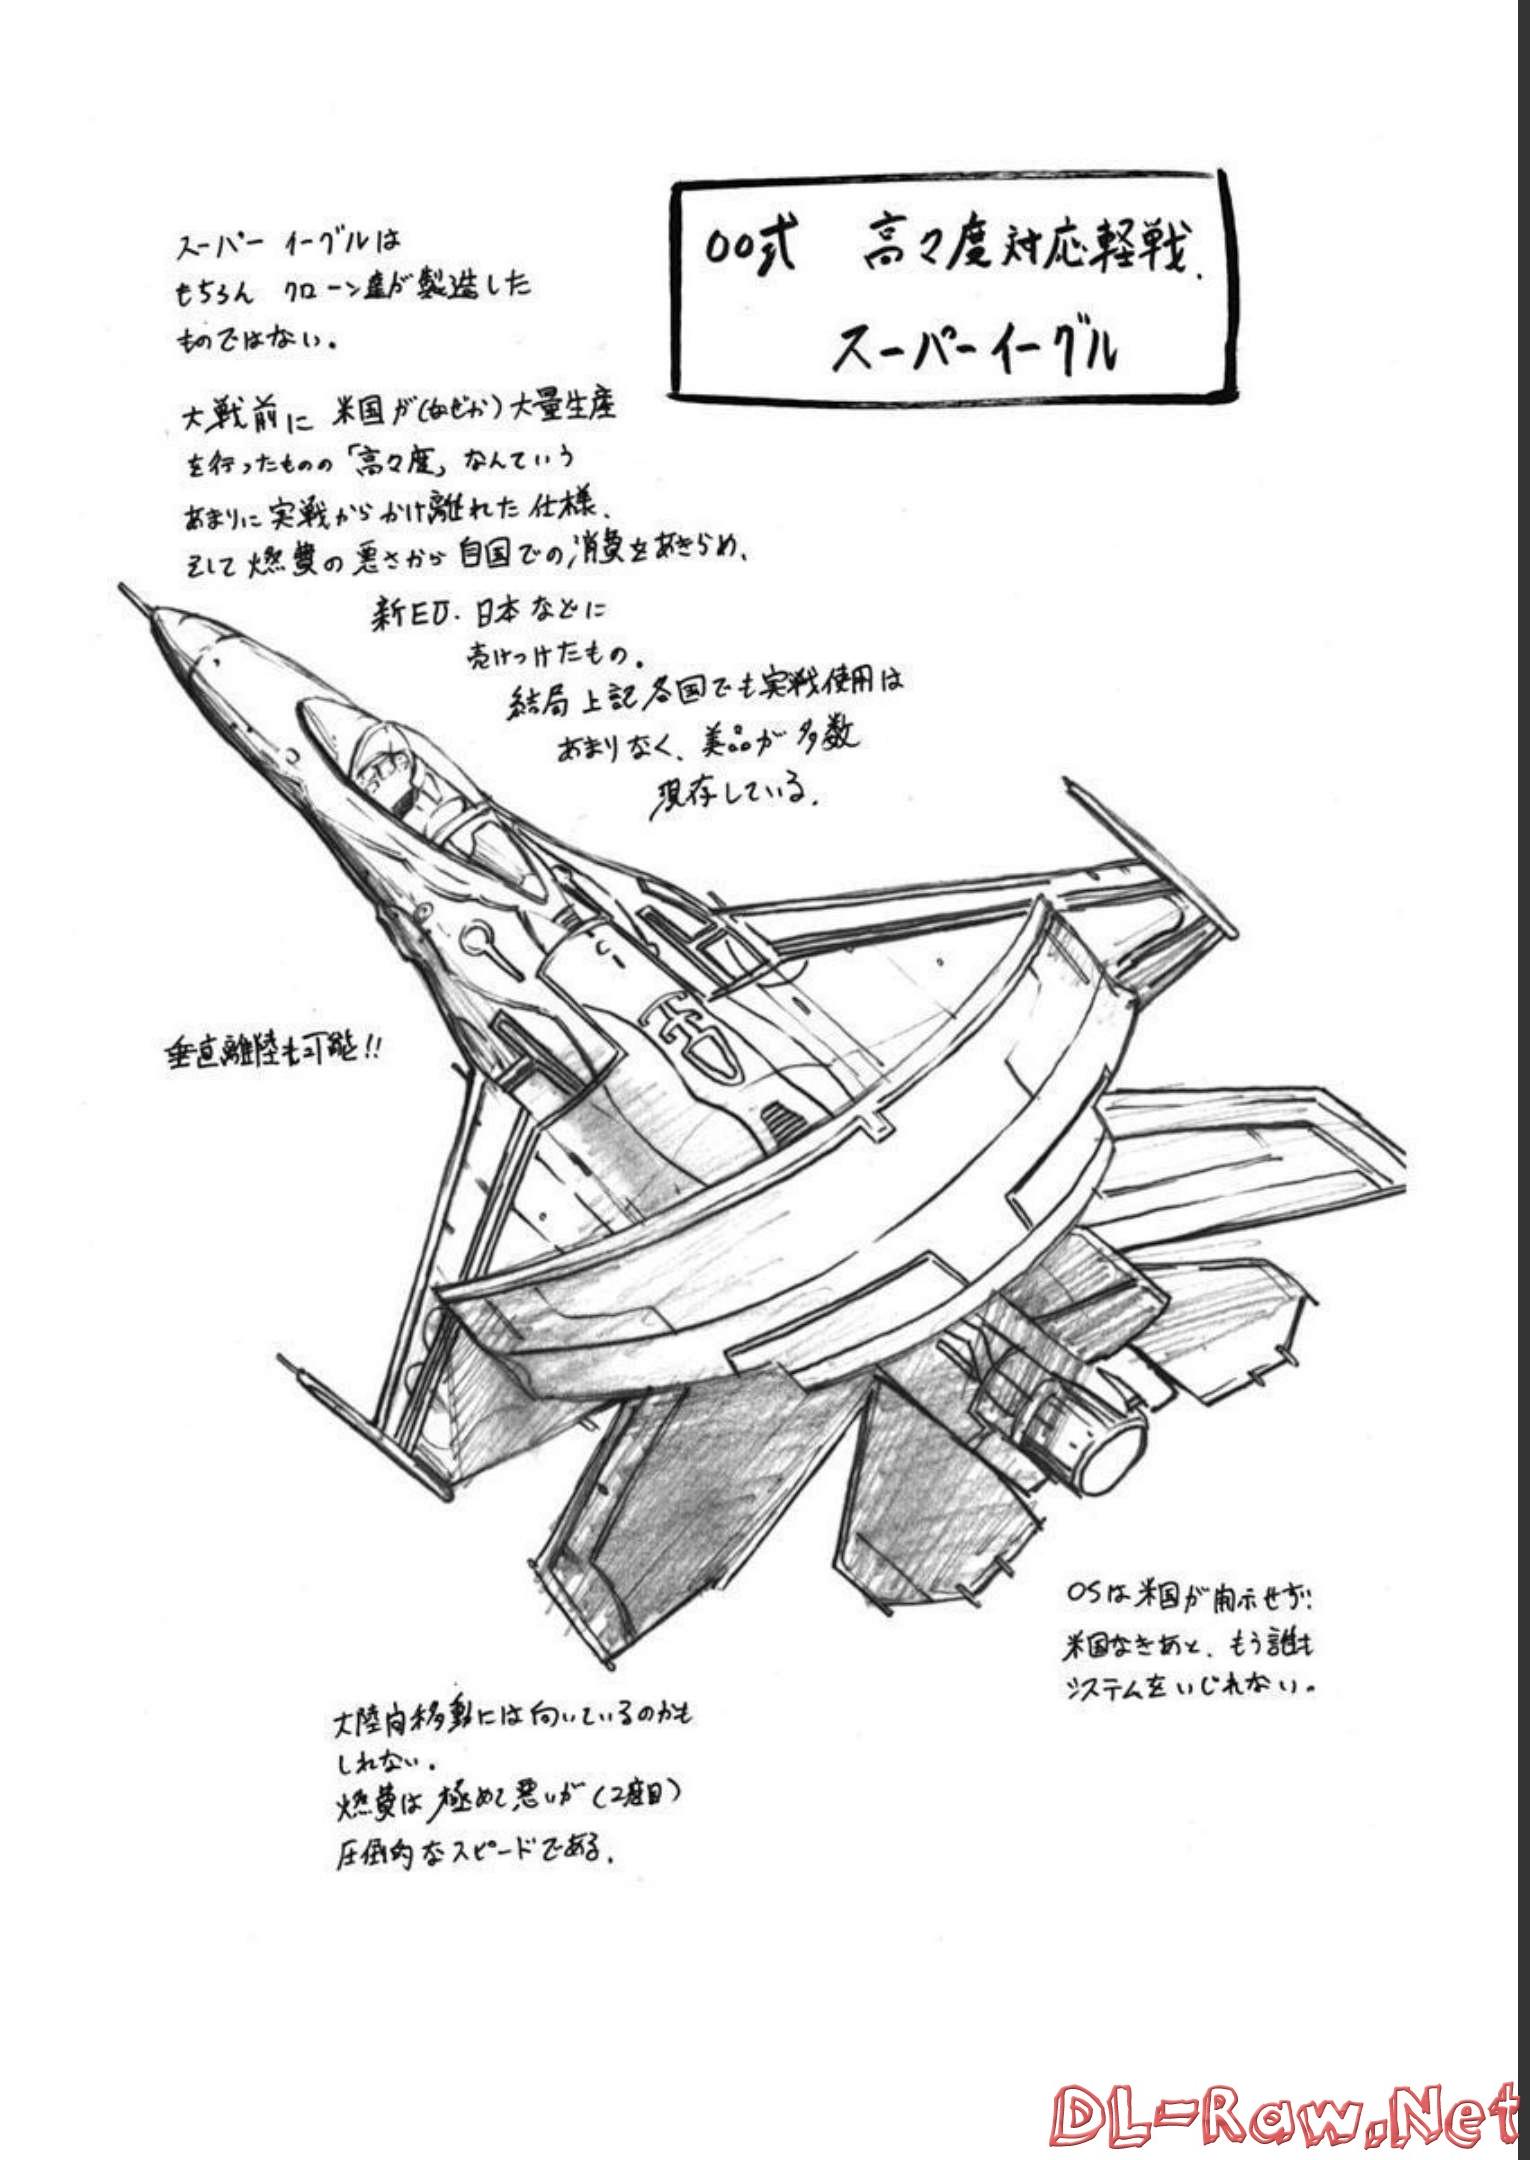 00式 高々度対応軽戦.
スーパーイーグル
スーパー イーグルは
もちろん クローン達が製造した
ものではない。
大戦前に 米国が(なぜか)大量生産
を行ったものの「高々度」なんていう
あまりに実戦からかけ離れた仕様、
そして燃費の悪さから自国での消費をあきらめ、
新EU.日本などに
売けつけたもの。
結局上記各国でも実戦使用は
あまりなく、美品が多数
現存している.
垂直離陸も可能!!
OSは米国が開示せず!
米国なきあと、もう誰も
システムをいじれない。
大陸内移動には向いているのかも
しれない。
燃費は極めて悪いが(2度目)
圧倒的なスピードである.
DL-Raw.Net